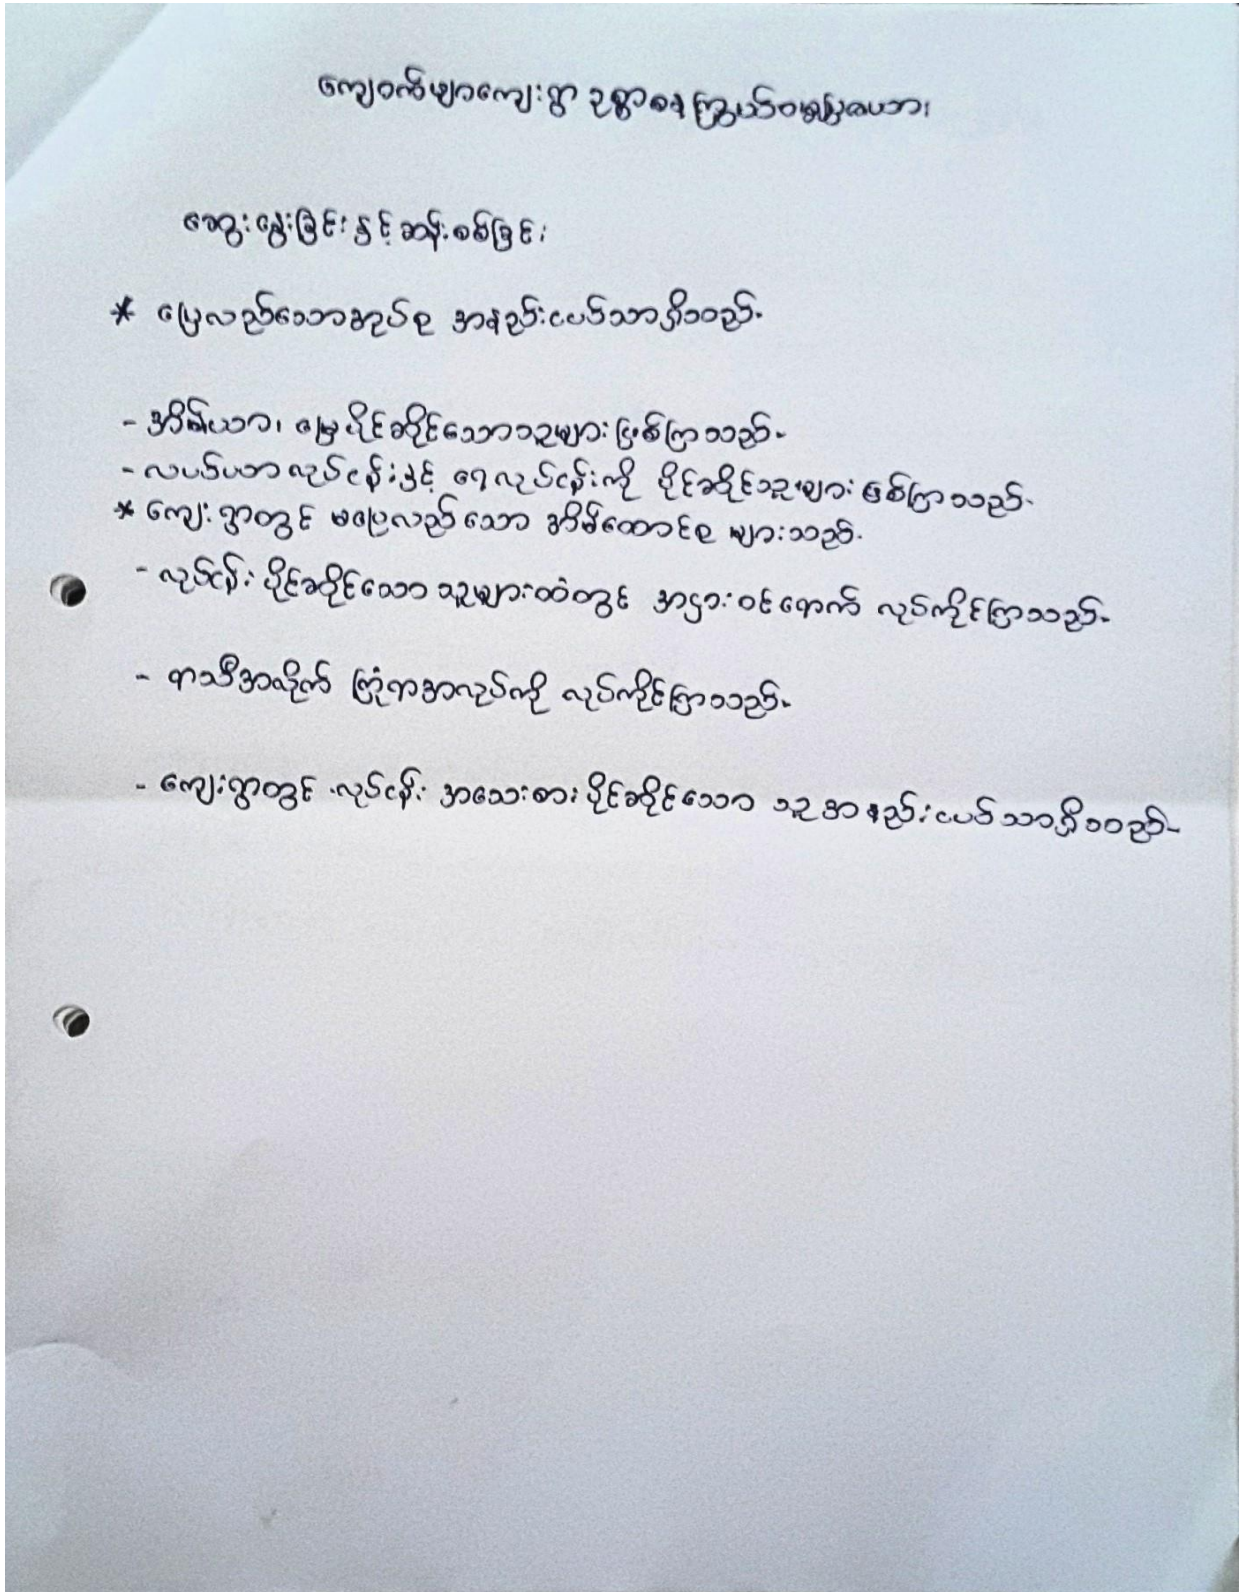 ကျေးရွာ ဥစ္စာဓန ကြွယ်ဝမှု
ဆွေးနွေးခြင်းနှင့် ဆန်းစစ်ခြင်း
* ပြေလည်သောအုပ်စု အနည်းငယ်သာရှိသည်.
- အိမ်ယာ၊ မြေပိုင်ဆိုင်သောသူများ ဖြစ်ကြသည်.
- လယ်ယာလုပ်ငန်းနှင့် ရေလုပ်ငန်းကို ပိုင်ဆိုင်သူများ ဖြစ်ကြသည်.
* ကျေးရွာတွင် မပြေလည်သော အိမ်ထောင်စု များသည်.
- လုပ်ငန်း ပိုင်ဆိုင်သော သူများထံတွင် အငှားဝင်ရောက် လုပ်ကိုင်ကြသည်.
- ရာသီအလိုက် ကြုံရာအလုပ်ကို လုပ်ကိုင်ကြသည်.
- ကျေးရွာတွင် လုပ်ငန်း အသေးစား ပိုင်ဆိုင်သော သူအနည်းငယ်သာရှိသည်.